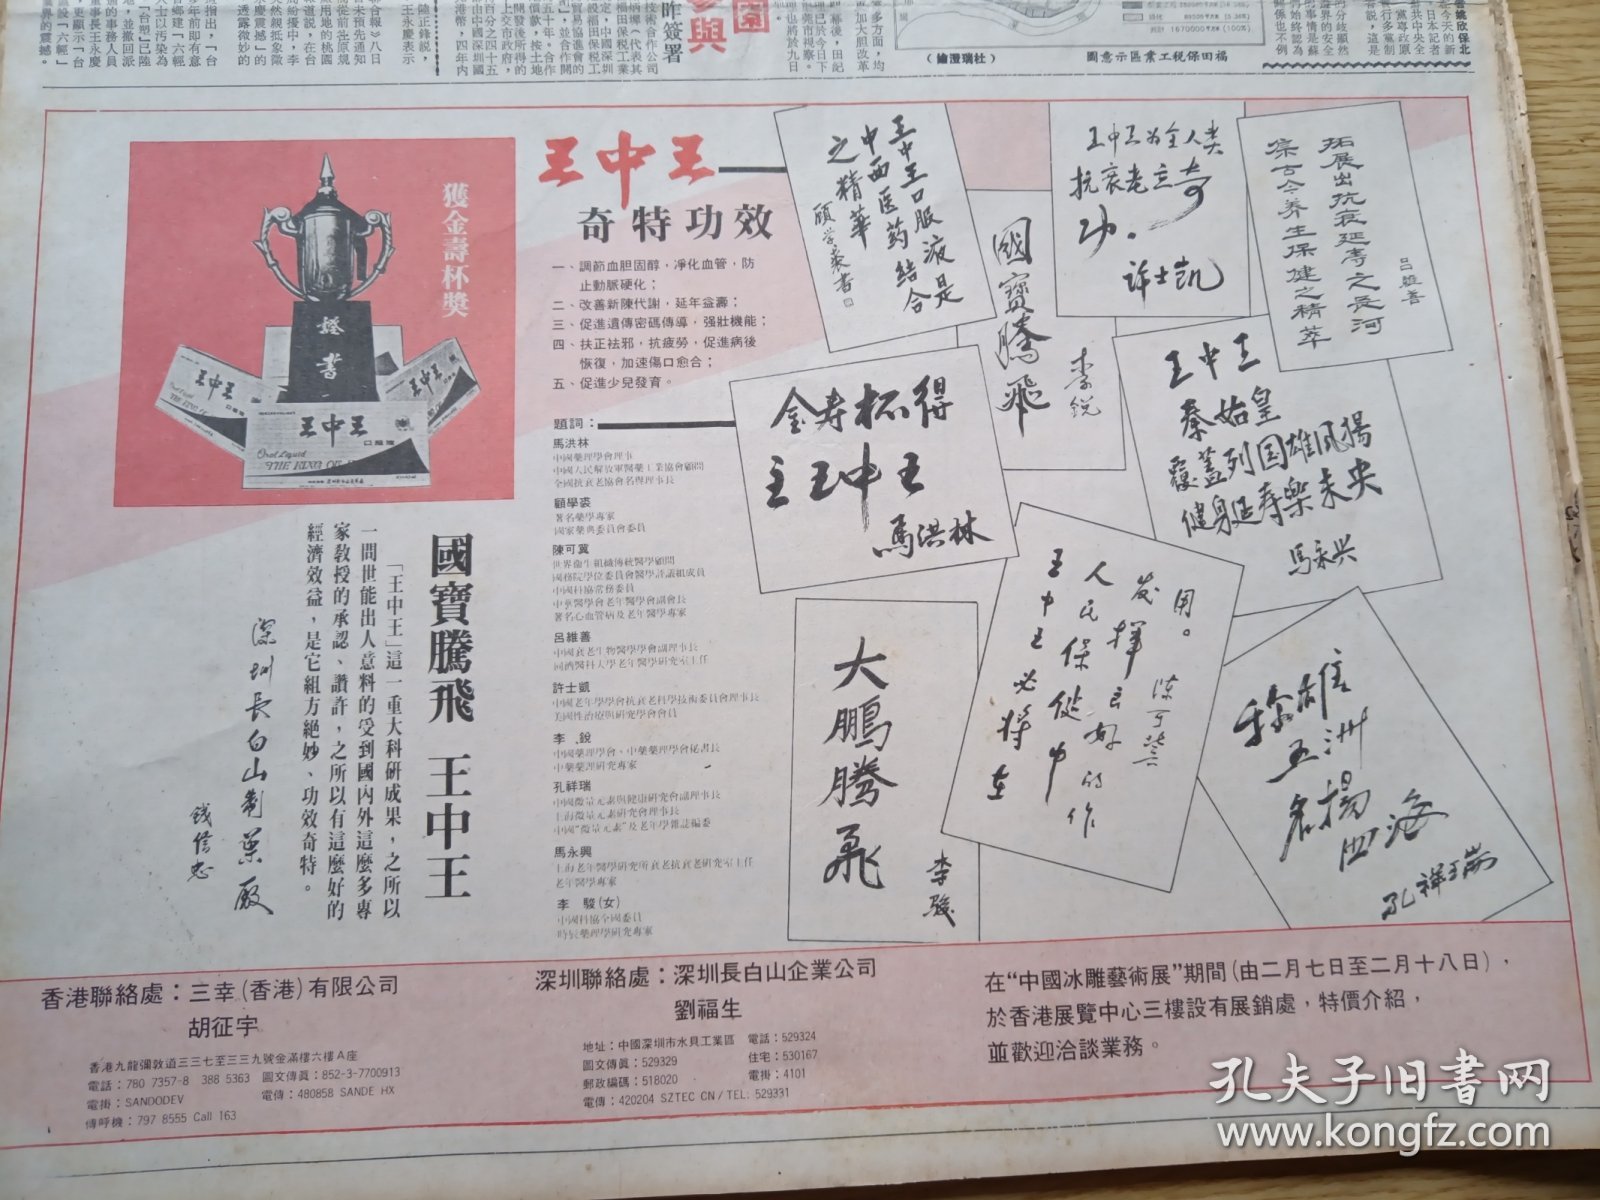 福田保稅工業區示意圖
(杜瑞澄繪)
昨簽署
參與
園
獲金壽杯獎
證書
王中王
口服液
Oral Liquid
THE KING OF
王中王
奇特功效
一、調節血胆固醇，淨化血管，防
止動脈硬化；
二、改善新陳代謝，延年益壽；
三、促進遺傳密碼傳導，强壯機能；
四、扶正祛邪，抗疲勞，促進病後
恢復，加速傷口愈合；
五、促進少兒發育。
題詞：
馬洪林
中國藥理學會理事
中國人民解放軍醫藥工業協會顧問
全國抗衰老協會名譽理事長
顧學裘
著名藥學專家
國家藥典委員會委員
陳可冀
世界衞生組織傳統醫學顧問
國務院學位委員會醫學評議組成員
中國科協常務委員
中華醫學會老年醫學會副會長
著名心血管病及老年醫學專家
呂維善
中國衰老生物醫學學會副理事長
同濟醫科大學老年醫學研究室主任
許士凱
中國老年學學會抗衰老科學技術委員會理事長
美國性治療與研究學會會員
李 銳
中國藥理學會、中華藥理學會秘書長
中藥藥理研究專家
孔祥瑞
中國微量元素與健康研究會副理事長
上海微量元素研究會理事長
中國“微量元素”及老年學雜誌編委
馬永興
上海老年醫學研究所衰老抗衰老研究室主任
老年醫學專家
李 駿(女)
中國科協全國委員
時辰藥理學研究專家
國寶騰飛 王中王
「王中王」這一重大科研成果，之所以
一問世能出人意料的受到國內外這麼多專
家教授的承認、讚許，之所以有這麼好的
經濟效益，是它組方絕妙、功效奇特。
深圳長白山制藥廠
錢信忠
王中王口服液是
中西医药结合
之精華
顧学裘書
國寶騰飛
李銳
王中王为全人类
抗衰老立奇
功。
许士凯
拓展出抗衰延寿之長河
综古今养生保健之精萃
呂維善
金寿杯得
主王中王
馬洪林
王中王
秦始皇
覆蓋列国雄风揚
健身延寿樂未央
馬永兴
大鵬腾飛
李駿
王中王必将在
人民保健中
发揮良好的作
用。
陈可冀
称雄
五洲
名揚
四海
孔祥瑞
香港聯絡處：三幸(香港)有限公司
胡征宇
香港九龍彌敦道三三七至三三九號金滿樓六樓A座
電話：780 7357-8 386 5363 圖文傳真：852-3-7700913
電掛：SANDODEV 電傳：480858 SANDE HX
傳呼機：797 8555 Call 163
深圳聯絡處：深圳長白山企業公司
劉福生
地址：中國深圳市水貝工業區 電話：529324
圖文傳真：529329 住宅：530167
郵政編碼：518020 電掛：4101
電傳：420204 SZTEC CN/TEL: 529331
在“中國冰雕藝術展”期間(由二月七日至二月十八日)，
於香港展覽中心三樓設有展銷處，特價介紹，
並歡迎洽談業務。
孔夫子旧书网
www.kongfz.com